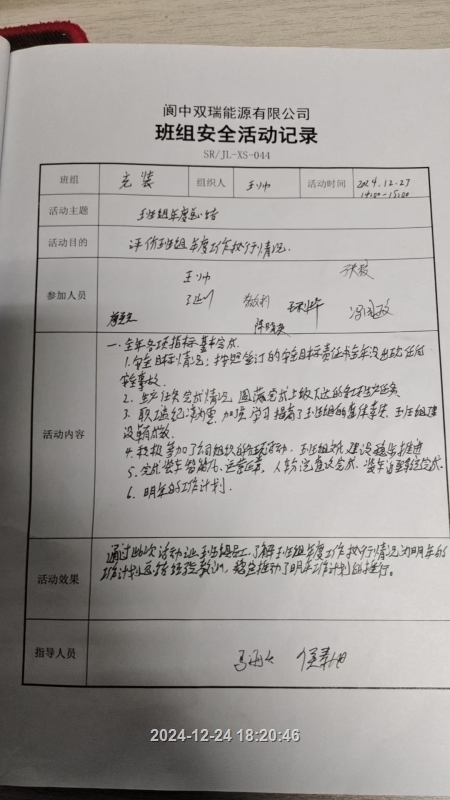 阆中双瑞能源有限公司
班组安全活动记录
SR/JL-XS-044
班组 充装 组织人 王帅 活动时间 2024.12.27
14:00-15:00
活动主题 班组年度总结
活动目的 评价班组年度工作执行情况.
参加人员 王帅
活动内容 一.全年各项指标基本完成.
1.安全目标情况:按照签订的安全目标责任书全年没出现任何
安全事故.
2.生产任务完成情况 圆满完成上级下达的各种生产任务
3.职工遵纪 加强学习 提高了班组的整体素质,班组建
设有效.
4.积极参加了公司组织的各项活动.班组文化建设稳步推进
5.完成装车智能化运营 完成.装车
6.明年的工作计划.
活动效果 通过此次活动让班组员工了解班组年度工作执行情况为明年的
工作计划总结经验教训,稳定推动了明年工作计划的推行。
指导人员
2024-12-24 18:20:46